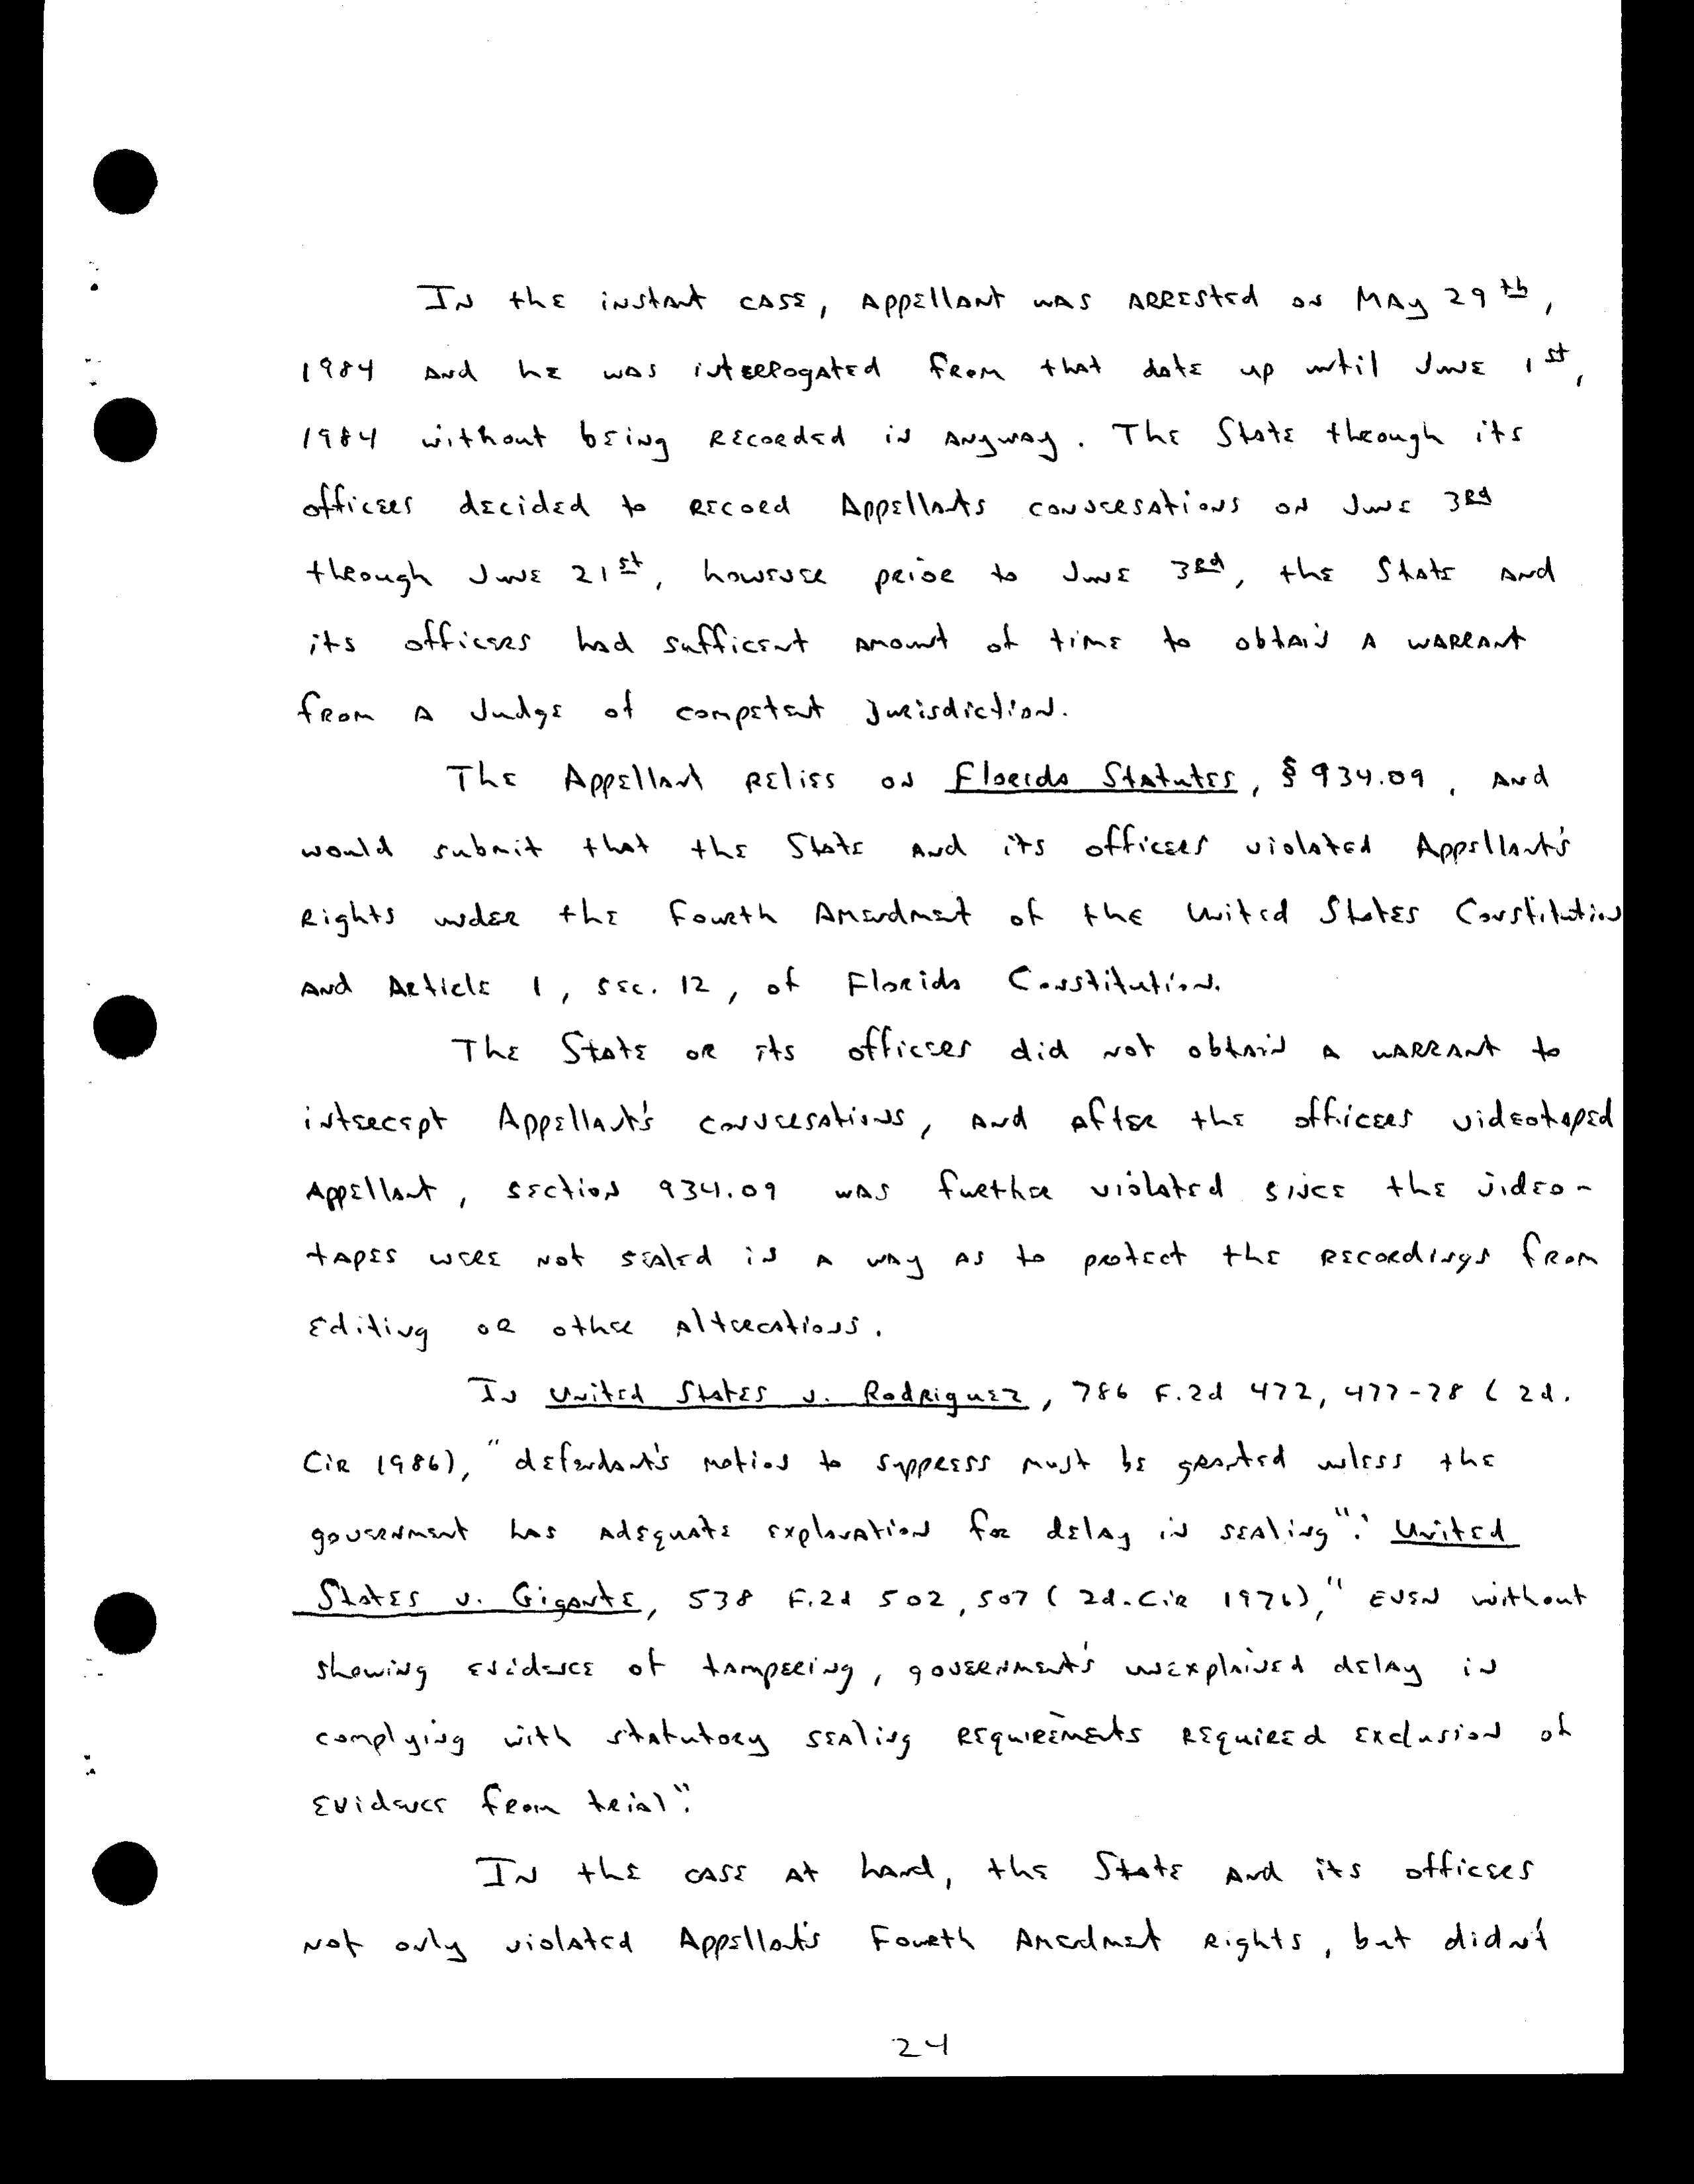 In the instant case, Appellant was arrested on May 29th,
1984 and he was interrogated from that date up until June 1st,
1984 without being recorded in anyway. The State through its
officers decided to record Appellants conversations on June 3rd
through June 21st, however prior to June 3rd, the State and
its officers had sufficent amount of time to obtain a warrant
from a Judge of competent jurisdiction.
The Appellant relies on Florida Statutes, § 934.09, and
would submit that the State and its officers violated Appellant's
rights under the Fourth Amendment of the United States Constitution
and Article 1, sec. 12, of Florida Constitution.
The State or its officers did not obtain a warrant to
intercept Appellant's conversations, and after the officers videotaped
Appellant, section 934.09 was further violated since the video-
tapes were not sealed in a way as to protect the recordings from
editing or other altercations.
In United States v. Rodriguez, 786 F.2d 472, 477-78 (2d.
Cir 1986), "defendant's motion to suppress must be granted unless the
government has adequate explanation for delay in sealing". United
States v. Gigante, 538 F.2d 502, 507 (2d. Cir 1976), "even without
showing evidence of tampering, government's unexplained delay in
complying with statutory sealing requirements required exclusion of
evidence from trial".
In the case at hand, the State and its officers
not only violated Appellant's Fourth Amendment rights, but didn't
24